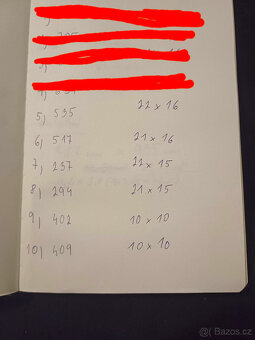 5) 535 22 x 16
6) 517 21 x 16
7) 257 22 x 15
8) 294 21 x 15
9) 402 10 x 10
10) 409 10 x 10
Bazoš.cz